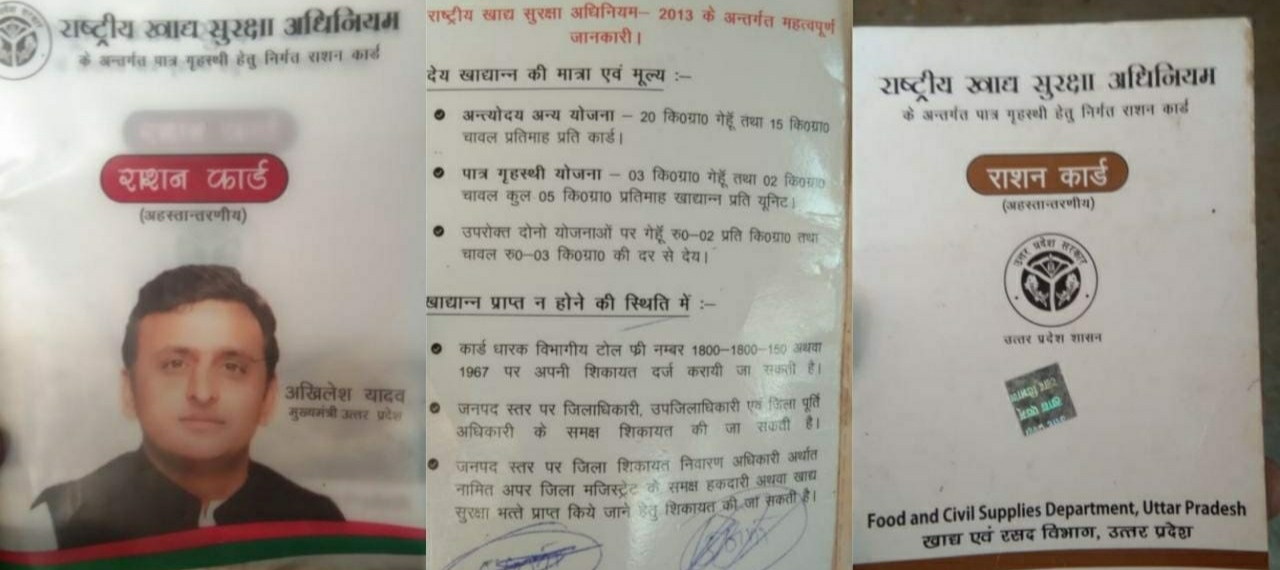 राष्ट्रीय खाद्य सुरक्षा अधिनियम
के अन्तर्गत पात्र गृहस्थी हेतु निर्गत राशन कार्ड
राशन कार्ड
(अहस्तान्तरणीय)
अखिलेश यादव
मुख्यमंत्री उत्तर प्रदेश
राष्ट्रीय खाद्य सुरक्षा अधिनियम– 2013 के अन्तर्गत महत्वपूर्ण
जानकारी।
देय खाद्यान्न की मात्रा एवं मूल्य :–
अन्त्योदय अन्य योजना – 20 कि0ग्रा0 गेहूँ तथा 15 कि0ग्रा0
चावल प्रतिमाह प्रति कार्ड।
पात्र गृहस्थी योजना – 03 कि0ग्रा0 गेहूँ तथा 02 कि0ग्रा0
चावल कुल 05 कि0ग्रा0 प्रतिमाह खाद्यान्न प्रति यूनिट।
उपरोक्त दोनो योजनाओं पर गेहूँ रु0–02 प्रति कि0ग्रा0 तथा
चावल रु0–03 कि0ग्रा0 की दर से देय।
खाद्यान्न प्राप्त न होने की स्थिति में :–
कार्ड धारक विभागीय टोल फ्री नम्बर 1800–1800–150 अथवा
1967 पर अपनी शिकायत दर्ज करायी जा सकती है।
जनपद स्तर पर जिलाधिकारी, उपजिलाधिकारी एवं जिला पूर्ति
अधिकारी के समक्ष शिकायत की जा सकती है।
जनपद स्तर पर जिला शिकायत निवारण अधिकारी अर्थात
नामित अपर जिला मजिस्ट्रेट के समक्ष हकदारी अथवा खाद्य
सुरक्षा भत्ते प्राप्त किये जाने हेतु शिकायत की जा सकती है।
राष्ट्रीय खाद्य सुरक्षा अधिनियम
के अन्तर्गत पात्र गृहस्थी हेतु निर्गत राशन कार्ड
राशन कार्ड
(अहस्तान्तरणीय)
उत्तर प्रदेश सरकार
उत्तर प्रदेश शासन
Food and Civil Supplies Department, Uttar Pradesh
खाद्य एवं रसद विभाग, उत्तर प्रदेश